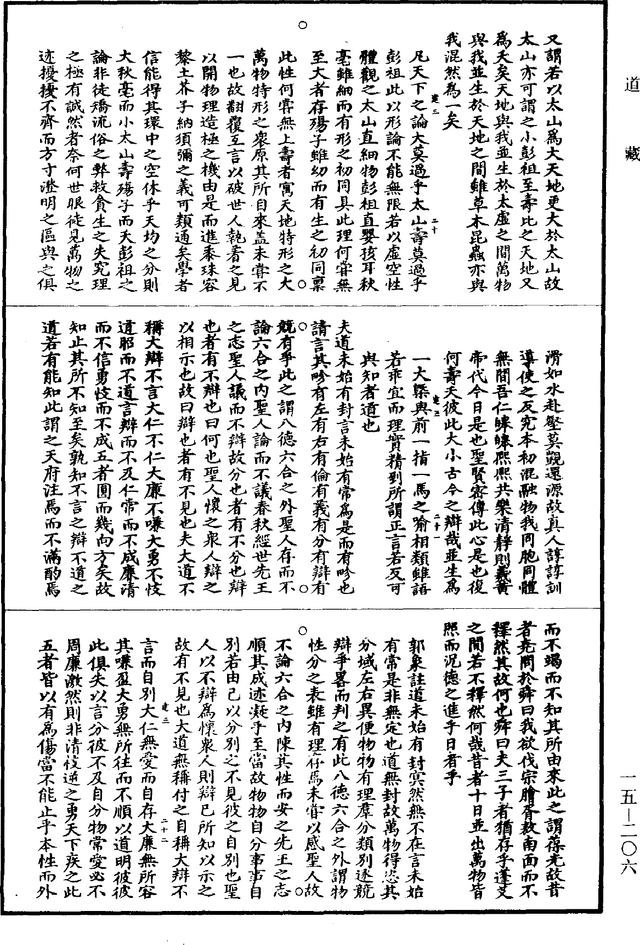 道藏
又謂若以太山爲大天地更大於太山故
太山亦可謂之小彭祖至壽比之天地又
爲夭矣天地與我並生於太虛之間萬物
與我並生於天地之間雖草木昆蟲亦與
我混然爲一矣
凡天下之論大莫過乎太山壽莫過乎
彭祖此以形論不能無限若以虛空性
體觀之太山直細物彭祖直嬰孩耳秋
毫雖細而有形之初同具此理何嘗無
至大者存殤子雖幼而有生之初同稟
此性何嘗無上壽者寓天地特形之大
萬物特形之衆原其所自來蓋未嘗不
一也故翻覆互言以破世人執著之見
以開物理造極之機由是而進黍珠容
黎土芥子納須彌之義可類通矣學者
信能得其環中之空休乎天均之分則
大秋毫而小太山壽殤子而夭彭祖之
論非徒矯流俗之弊救貪生之失究理
之極有誠然者奈何世眼徒見萬物之
迹擾擾不齊而方寸澄明之區與之俱
滑如水赴壑莫覩還源故真人諄諄訓
導使之反究本初混融物我同胞同體
無間吾仁皞皞熙熙共樂清靜則羲黃
帝代今日是也聖賢密傳此心是也復
何壽夭彼此大小古今之辯哉並生爲
一大槩與前一指一馬之喻相類雖語
若乖宜而理實精到所謂正言若反可
與知者道也
夫道未始有封言未始有常爲是而有畛也
請言其畛有左有右有倫有義有分有辯有
競有爭此之謂八德六合之外聖人存而不
論六合之內聖人論而不議春秋經世先王
之志聖人議而不辯故分也者有不分也辯
也者有不辯也曰何也聖人懷之衆人辯之
以相示也故曰辯也者有不見也夫大道不
稱大辯不言大仁不仁大廉不嗛大勇不忮
道昭而不道言辯而不及仁常而不成廉清
而不信勇忮而不成五者圓而幾向方矣故
知止其所不知至矣孰知不言之辯不道之
道若有能知此謂之天府注焉而不滿酌焉
而不竭而不知其所由來此之謂葆光故昔
者堯問於舜曰我欲伐宗膾胥敖南面而不
釋然其故何也舜曰夫三子者猶存乎蓬艾
之間若不釋然何哉昔者十日並出萬物皆
照而況德之進乎日者乎
郭象註道未始有封冥然無不在言未始
有常是非無定也道無封故萬物得恣其
分域左右異便物物有理羣分類別逐競
辯爭畧而判之有此八德六合之外謂物
性分之表雖有理存焉未嘗以感聖人故
不論六合之內陳其性而安之先王之志
順其成迹凝乎至當故物物自分事事自
別若由己以分別之不見彼之自別也聖
人以不辯爲懷衆人則辯已所知以示之
故有不見也大道無稱付之自稱大辯不
言而自別大仁無愛而自存大廉無所容
其嗛盈大勇無所往而不順以道明彼彼
此俱失以言分彼不及自分物常愛必不
周廉激然則非清忮逆之勇天下疾之此
五者皆以有爲傷當不能止乎本性而外
一五—二〇六